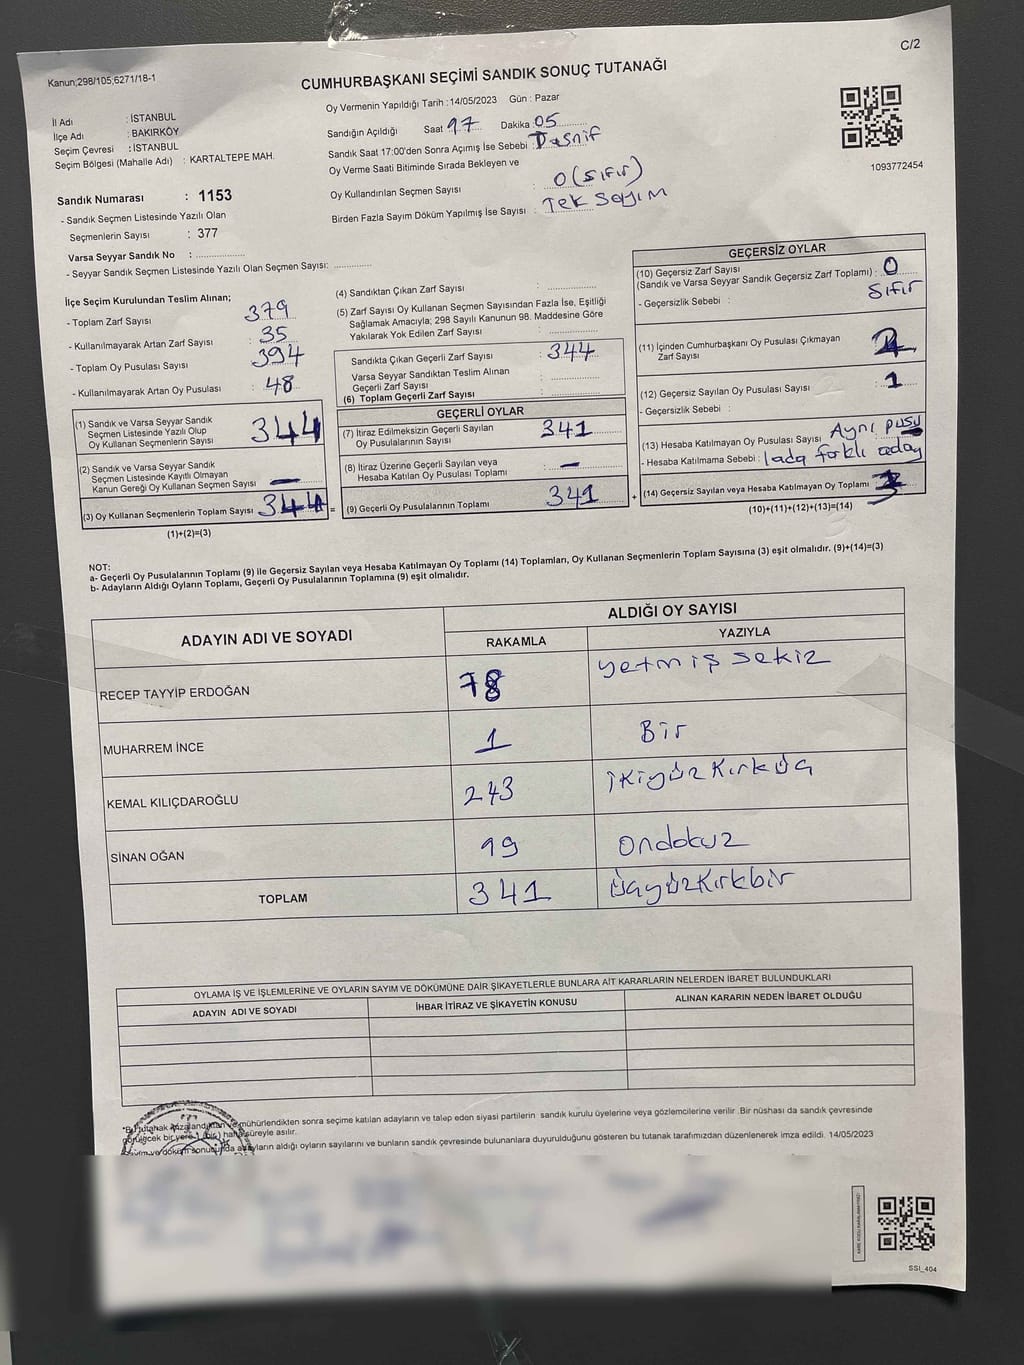 Kanun;298/105;6271/18-1
C/2
CUMHURBAŞKANI SEÇİMİ SANDIK SONUÇ TUTANAĞI
İl Adı : İSTANBUL
İlçe Adı : BAKIRKÖY
Seçim Çevresi : İSTANBUL
Seçim Bölgesi (Mahalle Adı) : KARTALTEPE MAH.
Oy Vermenin Yapıldığı Tarih : 14/05/2023 Gün : Pazar
Sandığın Açıldığı Saat 17 Dakika : 05
Sandık Saat 17:00'den Sonra Açımış İse Sebebi : Tasnif
Oy Verme Saati Bitiminde Sırada Bekleyen ve
Oy Kullandırılan Seçmen Sayısı : 0 (sıfır)
Birden Fazla Sayım Döküm Yapılmış İse Sayısı : Tek sayım
1093772454
Sandık Numarası : 1153
- Sandık Seçmen Listesinde Yazılı Olan
Seçmenlerin Sayısı : 377
Varsa Seyyar Sandık No :
- Seyyar Sandık Seçmen Listesinde Yazılı Olan Seçmen Sayısı:
İlçe Seçim Kurulundan Teslim Alınan;
- Toplam Zarf Sayısı : 379
- Kullanılmayarak Artan Zarf Sayısı : 35
- Toplam Oy Pusulası Sayısı : 394
- Kullanılmayarak Artan Oy Pusulası : 48
(1) Sandık ve Varsa Seyyar Sandık
Seçmen Listesinde Yazılı Olup
Oy Kullanan Seçmenlerin Sayısı : 344
(2) Sandık ve Varsa Seyyar Sandık
Seçmen Listesinde Kayıtlı Olmayan
Kanun Gereği Oy Kullanan Seçmen Sayısı : —
(3) Oy Kullanan Seçmenlerin Toplam Sayısı : 344
(1)+(2)=(3)
(4) Sandıktan Çıkan Zarf Sayısı :
(5) Zarf Sayısı Oy Kullanan Seçmen Sayısından Fazla İse, Eşitliği
Sağlamak Amacıyla; 298 Sayılı Kanunun 98. Maddesine Göre
Yakılarak Yok Edilen Zarf Sayısı :
Sandıkta Çıkan Geçerli Zarf Sayısı : 344
Varsa Seyyar Sandıktan Teslim Alınan
Geçerli Zarf Sayısı :
(6) Toplam Geçerli Zarf Sayısı :
GEÇERLİ OYLAR
(7) İtiraz Edilmeksizin Geçerli Sayılan
Oy Pusulalarının Sayısı : 341
(8) İtiraz Üzerine Geçerli Sayılan veya
Hesaba Katılan Oy Pusulası Toplamı : —
= (9) Geçerli Oy Pusulalarının Toplamı : 341 +
GEÇERSİZ OYLAR
(10) Geçersiz Zarf Sayısı
(Sandık ve Varsa Seyyar Sandık Geçersiz Zarf Toplamı) : 0
- Geçersizlik Sebebi : Sıfır
(11) İçinden Cumhurbaşkanı Oy Pusulası Çıkmayan
Zarf Sayısı :
(12) Geçersiz Sayılan Oy Pusulası Sayısı : 1
- Geçersizlik Sebebi :
(13) Hesaba Katılmayan Oy Pusulası Sayısı : Aynı pusu
- Hesaba Katılmama Sebebi : lada farklı aday
(14) Geçersiz Sayılan veya Hesaba Katılmayan Oy Toplamı : 3
(10)+(11)+(12)+(13)=(14)
NOT:
a- Geçerli Oy Pusulalarının Toplamı (9) ile Geçersiz Sayılan veya Hesaba Katılmayan Oy Toplamı (14) Toplamları, Oy Kullanan Seçmenlerin Toplam Sayısına (3) eşit olmalıdır. (9)+(14)=(3)
b- Adayların Aldığı Oyların Toplamı, Geçerli Oy Pusulalarının Toplamına (9) eşit olmalıdır.
ADAYIN ADI VE SOYADI ALDIĞI OY SAYISI
RAKAMLA YAZIYLA
RECEP TAYYİP ERDOĞAN 78 yetmiş sekiz
MUHARREM İNCE 1 Bir
KEMAL KILIÇDAROĞLU 243 ikiyüzkırküç
SİNAN OĞAN 19 ondokuz
TOPLAM 341 üçyüzkırkbir
OYLAMA İŞ VE İŞLEMLERİNE VE OYLARIN SAYIM VE DÖKÜMÜNE DAİR ŞİKAYETLERLE BUNLARA AİT KARARLARIN NELERDEN İBARET BULUNDUKLARI
ADAYIN ADI VE SOYADI İHBAR İTİRAZ VE ŞİKAYETİN KONUSU ALINAN KARARIN NEDEN İBARET OLDUĞU
*Bu tutanak imzalandıktan ve mühürlendikten sonra seçime katılan adayların ve talep eden siyasi partilerin sandık kurulu üyelerine veya gözlemcilerine verilir .Bir nüshası da sandık çevresinde
görülecek bir yere 1 (bir) hafta süreyle asılır.
Sayım ve döküm sonucunda adayların aldığı oyların sayılarını ve bunların sandık çevresinde bulunanlara duyurulduğunu gösteren bu tutanak tarafımızdan düzenlenerek imza edildi. 14/05/2023
SSI_404